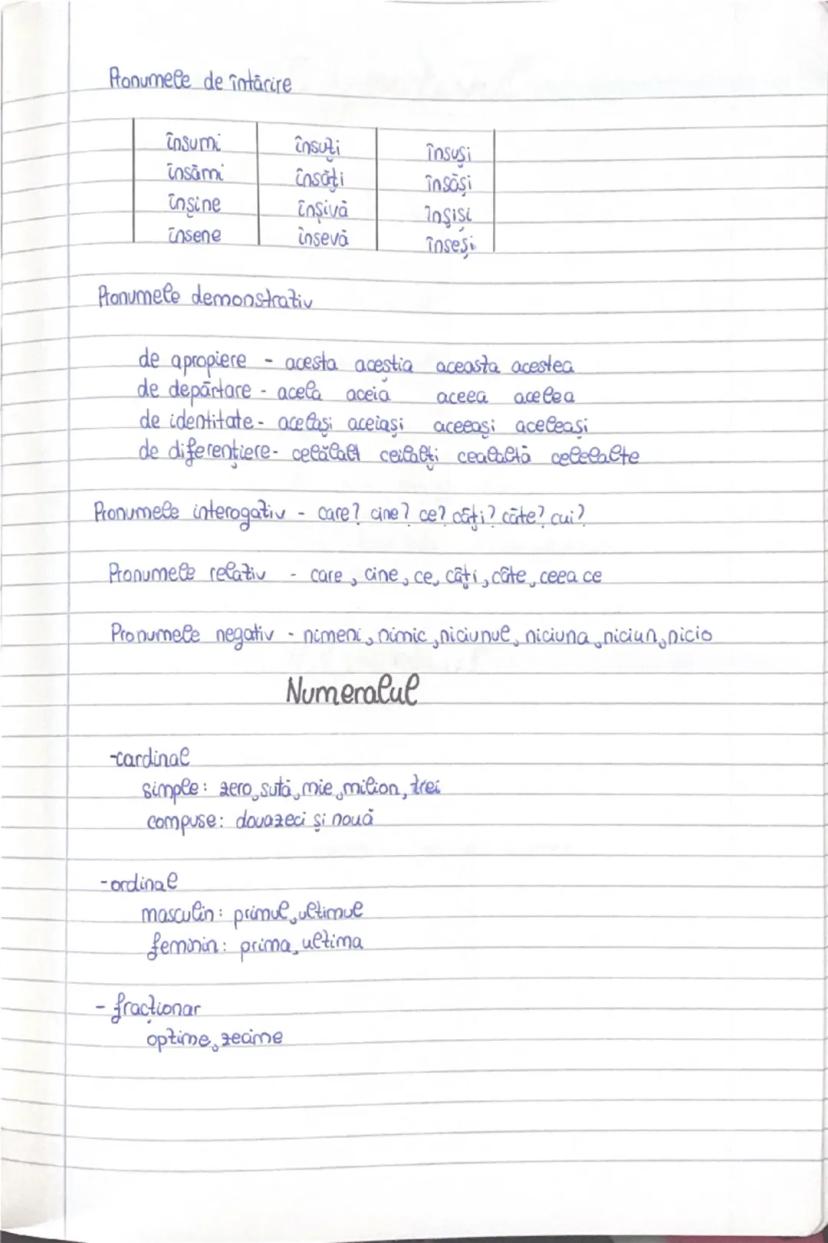 Pronumele de întărire
însumi însuți însuși
însămi însăți însăși
înșine înșivă înșiși
însene însevă înseși
Pronumele demonstrativ
de apropiere - acesta acestia aceasta acestea
de depărtare - acela aceia aceea acelea
de identitate - același aceiași aceeași aceleași
de diferențiere - celălalt ceilalți cealaltă celelalte
Pronumele interogativ - care? cine? ce? câți? câte? cui?
Pronumele relativ - care, cine, ce, câți, câte, ceea ce
Pronumele negativ - nimeni, nimic, niciunul, niciuna, niciun, nicio
Numeralul
-cardinal
simple: zero, sută, mie, milion, trei
compuse: douazeci și nouă
-ordinal
masculin: primul, ultimul
feminin: prima, ultima
- fracționar
optime, zecime